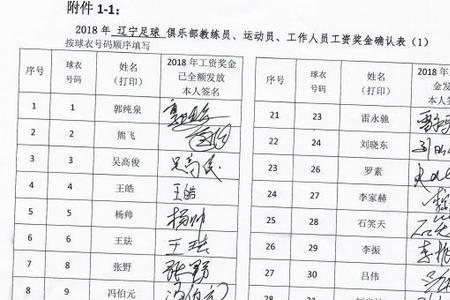 附件 1-1:
2018 年 辽宁足球 俱乐部教练员、运动员、工作人员工资奖金确认表（1）
按球衣号码顺序填写
序号 球衣号码 姓名（打印） 2018 年工资奖金已全额发放本人签名
1 1 郭纯泉
2 2 熊飞
3 3 吴高俊 吴高俊
4 4 王皓 王皓
5 5 杨帅 杨帅
6 6 王珐 王珐
7 8 张野 张野
8 9 冯伯元 冯伯元
序号 球衣号码 姓名（打印） 2018 年
21 23 雷永驰
22 24 刘晓东
23 26 罗素
24 27 李家赫
25 28 石笑天
26 29 李振
27 30 吕伟